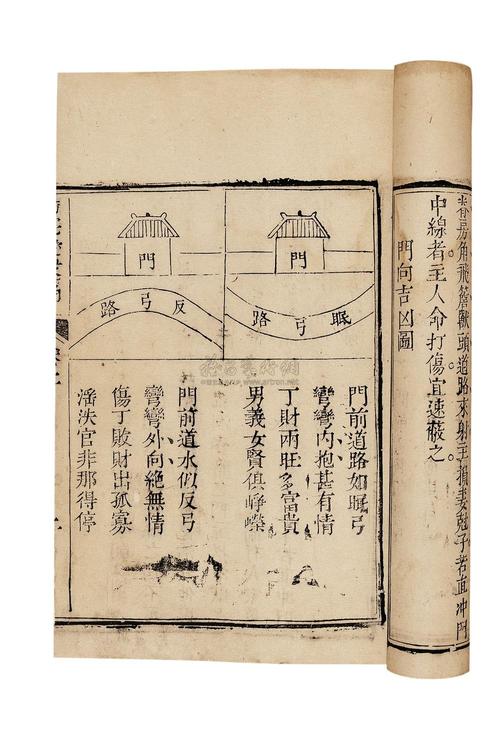 脊房角飛簷獸頭道路來射主損妻尅子若直冲門
中線者主人命打傷宜速蔽之
門向吉凶圖
門
眠弓路
門前道路如眠弓
彎彎內抱甚有情
丁財兩旺多富貴
男義女賢俱崢嶸
門
反弓路
門前道水似反弓
彎彎外向絶無情
傷丁敗財出孤寡
滛泆官非那得停
www.artron.net